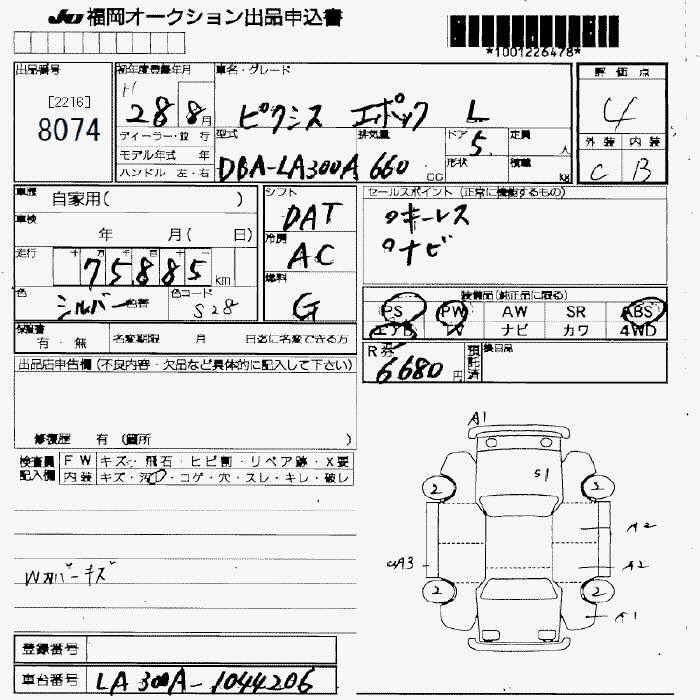 JU 福岡オークション出品申込書
*1001226478*
出品番号
[2216]
8074
初年度登録年月
H
28 8月
ディーラー・並行
モデル年式 年
ハンドル 左・右
車名・グレード
ピクシス エポック L
型式
DBA-LA300A
排気量
660 CC
ドア
5
形状
定員
人
積載
kg
評価点
4
外装 内装
C B
車歴
自家用( )
車検
年 月( 日)
走行
十 万 千 百 十 一
75885 km
色
シルバー 色替
色コード
S28
シフト
DAT
冷房
AC
燃料
G
セールスポイント (正常に機能するもの)
キーレス
ナビ
装備品(純正品に限る)
PS PW AW SR ABS
エアB TV ナビ カワ 4WD
保証書
有・無
名変期限 月 日迄に名変できる方
R券
6680円
預託済
換目品
出品店申告欄 (不良内容・欠品など具体的に記入して下さい)
修復歴 有 (箇所 )
検査員
記入欄
FW キズ・飛石・ヒビ割・リペア跡・X要
内装 キズ・汚・コゲ・穴・スレ・キレ・破レ
A1
S1
2
5
A2
A3
A2
2
2
A1
Wカバーキズ
登録番号
車台番号
LA300A-1044206